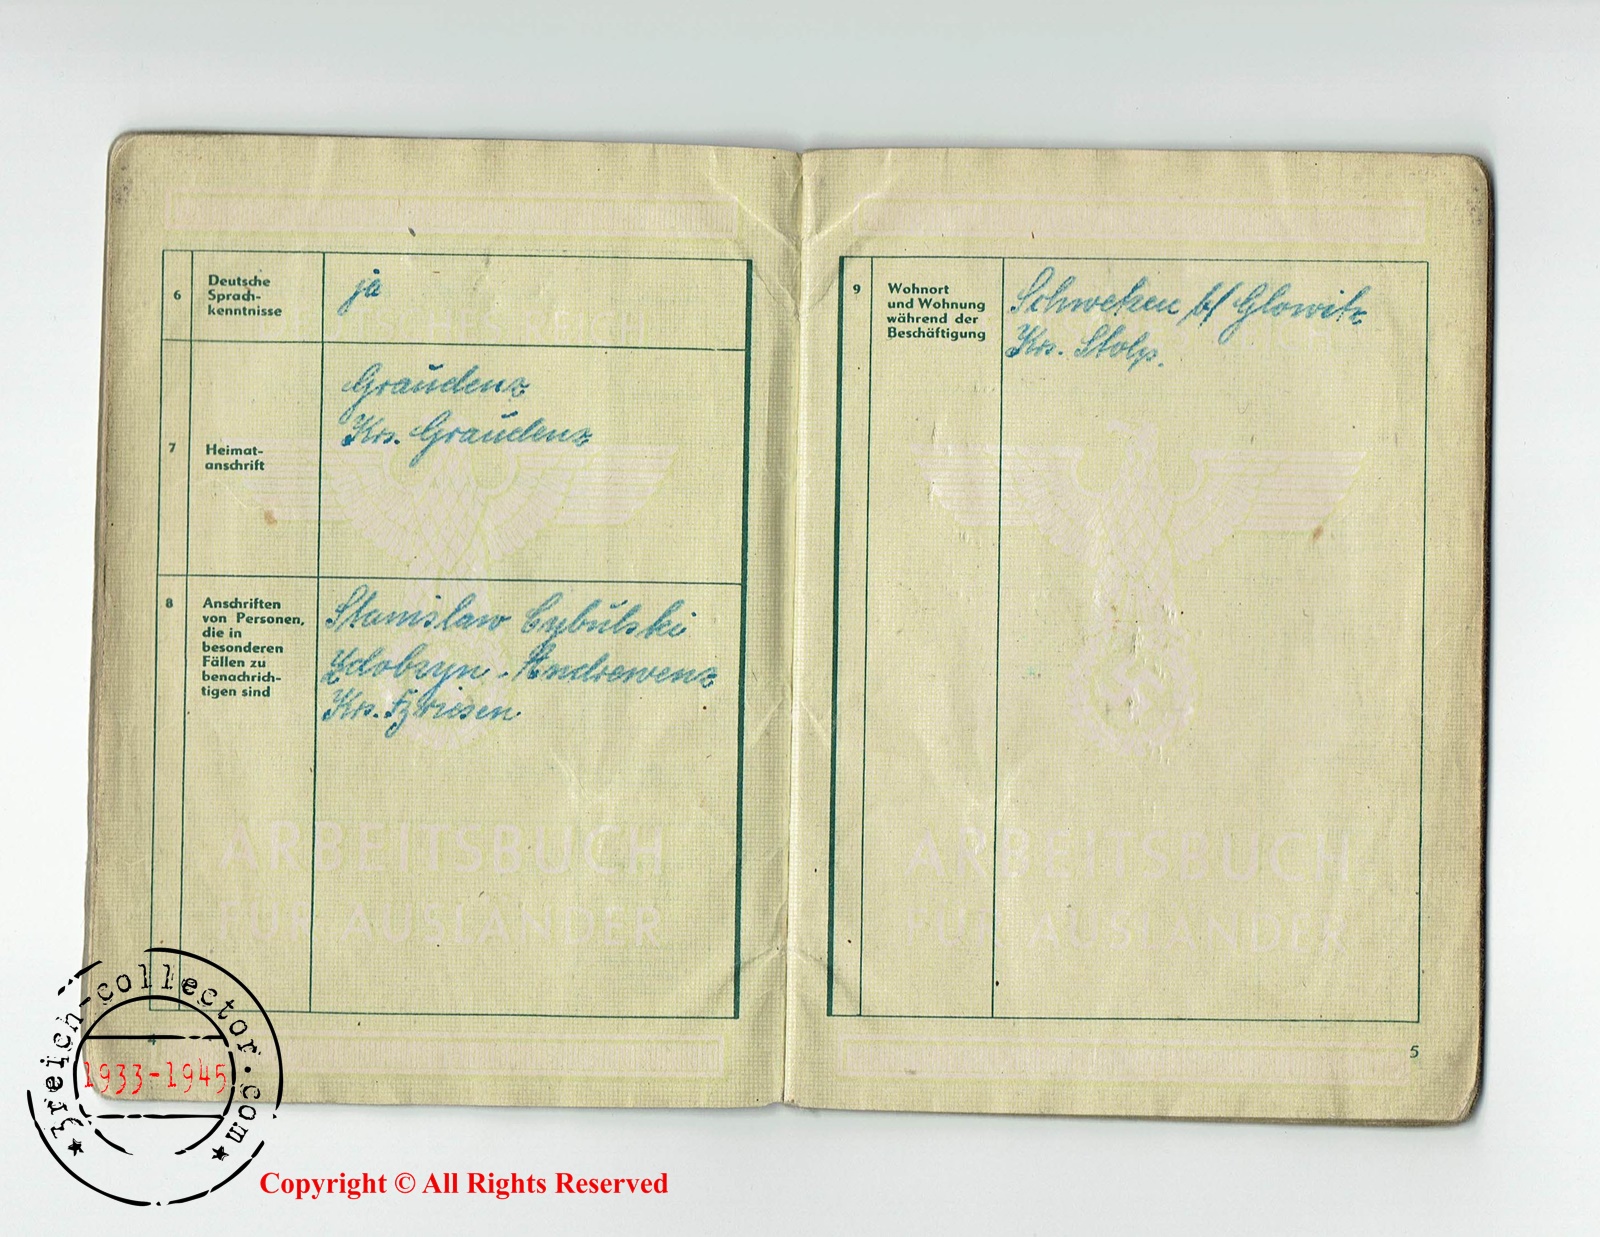 6
Deutsche
Sprach-
kenntnisse
ja
7
Heimat-
anschrift
Graudenz
Krs. Graudenz
8
Anschriften
von Personen,
die in
besonderen
Fällen zu
benachrich-
tigen sind
Stanislaw Cybulski
Krs. Briesen
ARBEITSBUCH
FÜR AUSLÄNDER
4
9
Wohnort
und Wohnung
während der
Beschäftigung
b/ Glowitz
Krs. Stolp.
ARBEITSBUCH
FÜR AUSLÄNDER
5
3reich-collector.com
1933-1945
Copyright © All Rights Reserved